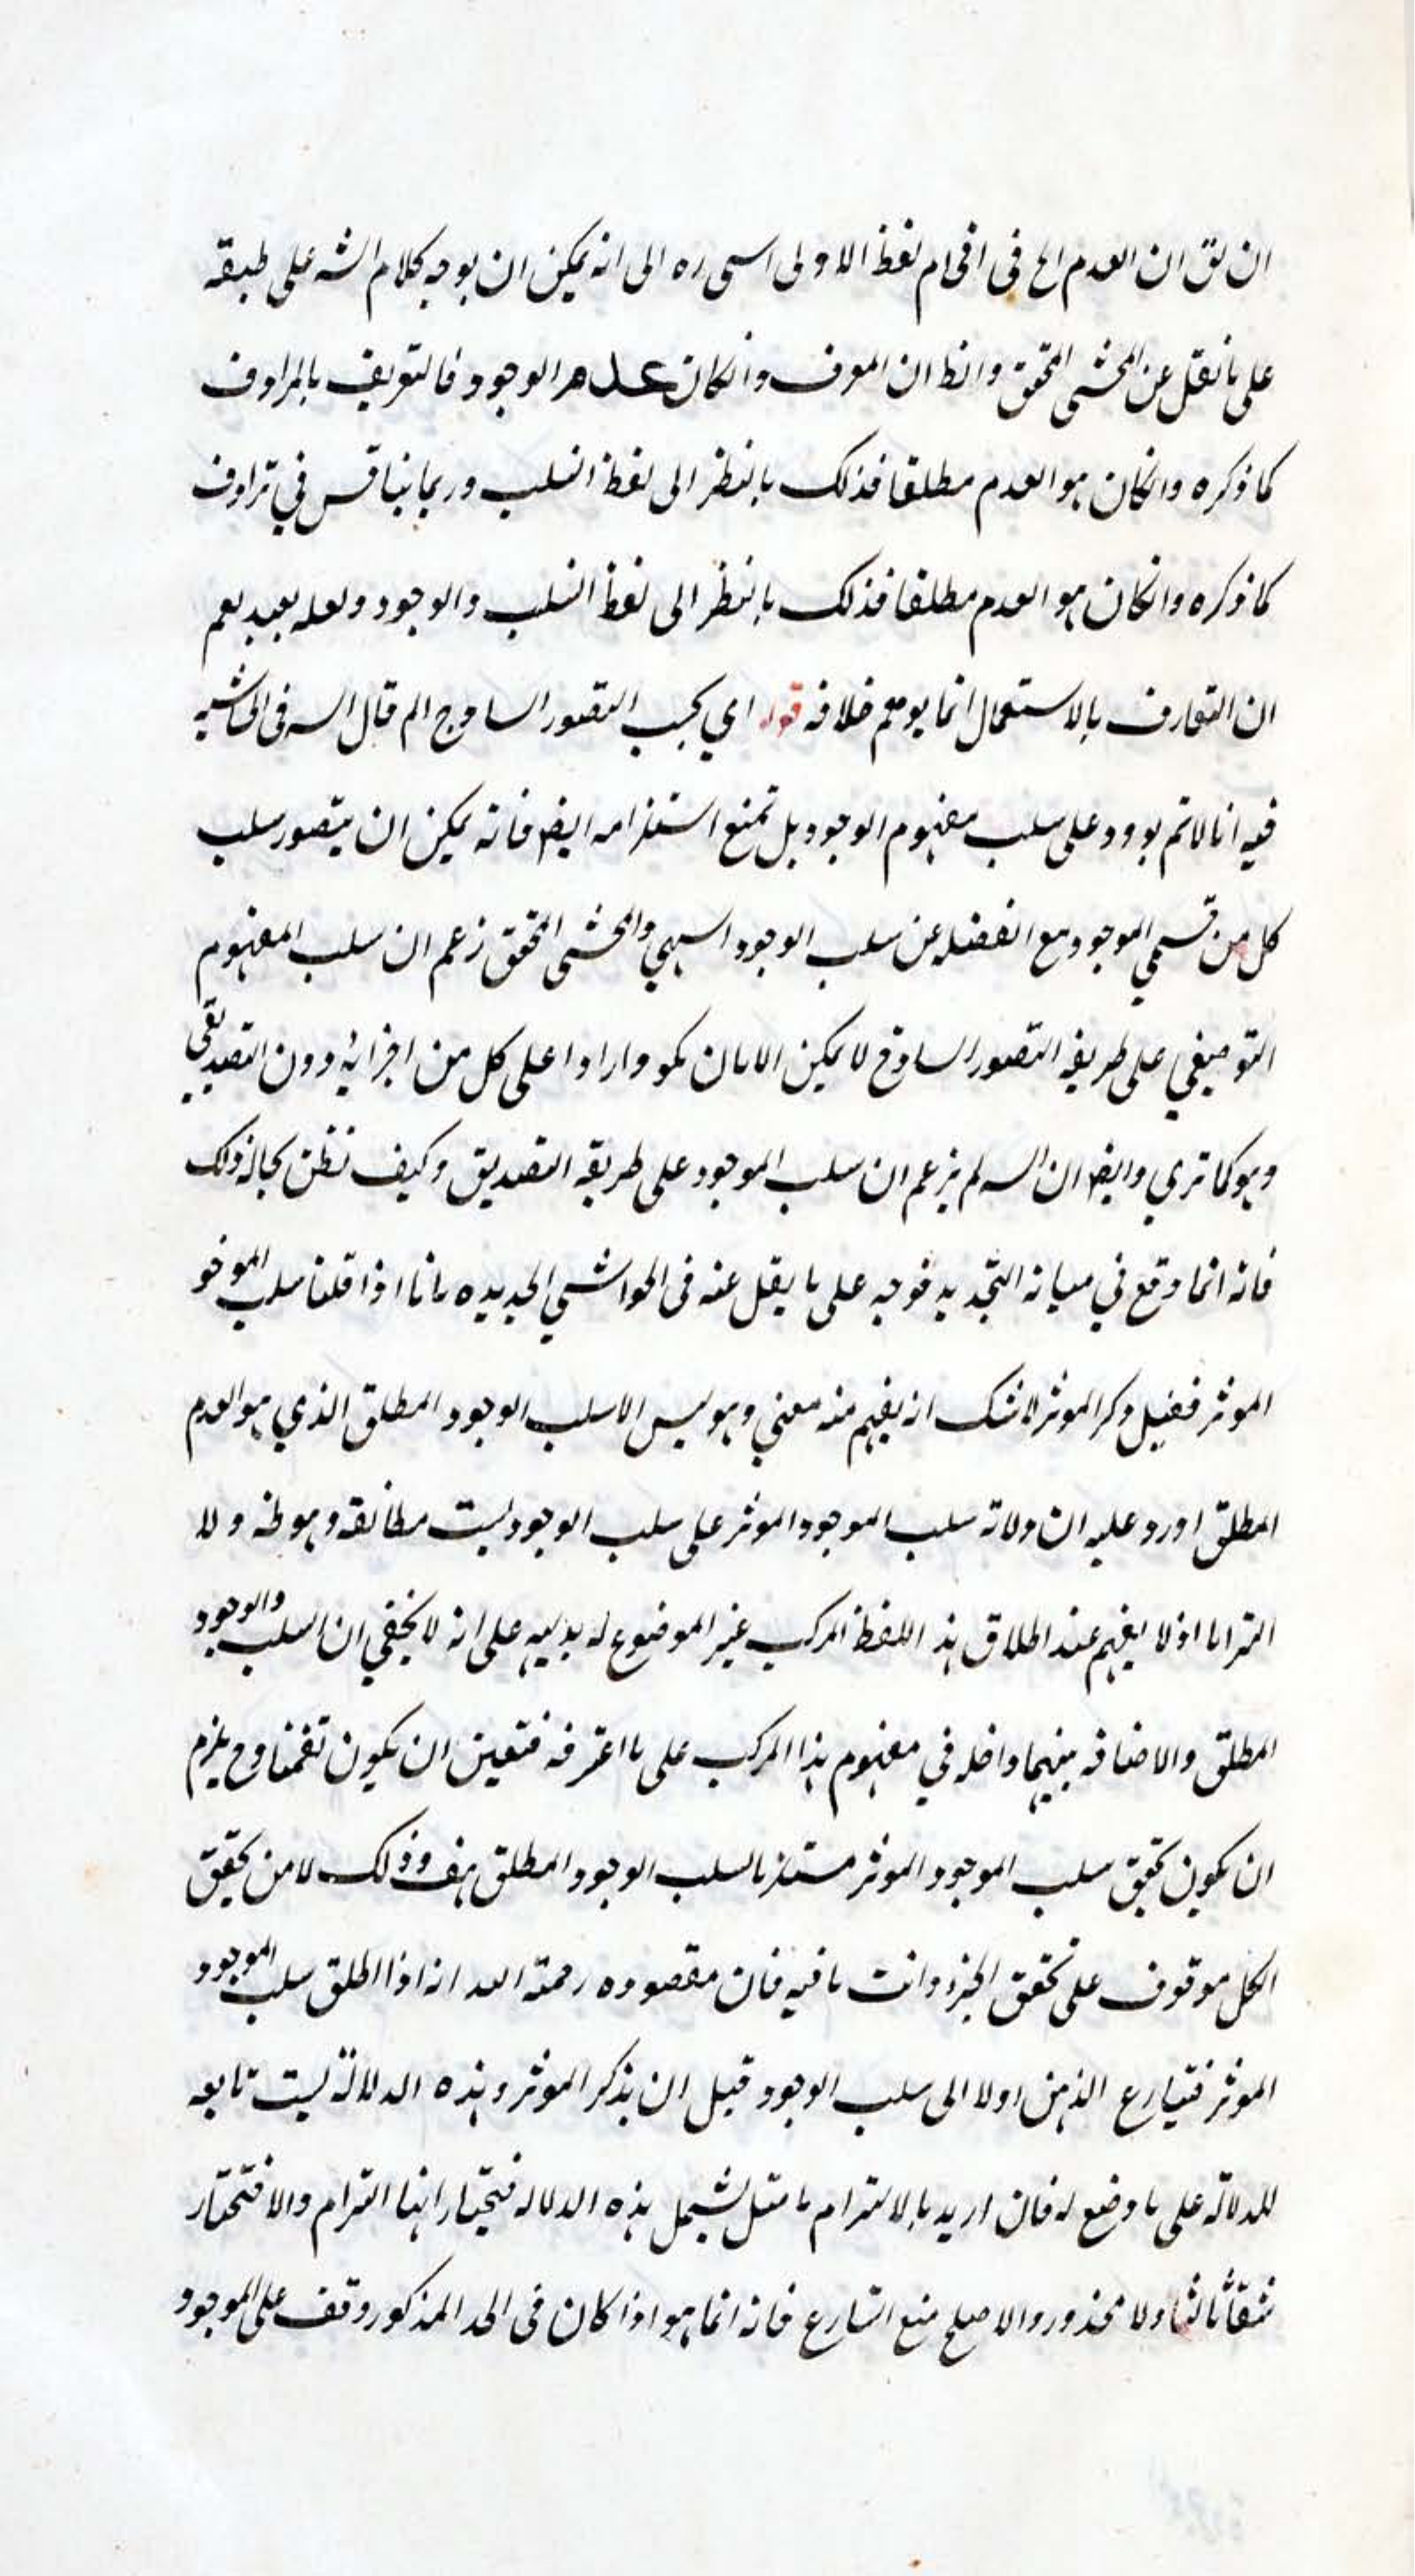 ان يق ان العدم الخ في اقحام لفظ الاولى اسمى ره الى انه يمكن ان يوجه كلام الشه على طبقه
على ما نقل عن المحشى المحقق والظ ان المعرف وانكان عدم الوجود فالتعريف بالمرادف
كما ذكره وانكان هو العدم مطلقا فذلك بالنظر الى لفظ السلب وربما يناقس في ترادف
كما ذكره وانكان هو العدم مطلقا فذلك بالنظر الى لفظ السلب والوجود ولعله بعيد نعم
ان التعارف بالاستعمال انما يوهم خلافه قوله اي بحسب التصور الساذج الم قال السه في الحاشيه
فيه انا لانم بوروده على سلب مفهوم الوجود بل نمنع استلزامه ايضا فانه يمكن ان يتصور سلب
كل من قسمي الموجود مع الغفله عن سلب الوجود اسهي والمحشى المحقق زعم ان سلب المفهوم
التوصيفي على طريقه التصور الساذج لا يمكن الا بان يكو واردا على كل من اجزائه دون التصديقي
وهو كما تري وايضا ان السه لم يزعم ان سلب الموجود على طريقه التصديق وكيف نظن بحاله ذلك
فانه انما وقع في التجديد فوجه على ما ينقل عنه في الحواشي الجديده بانا اذا قلنا سلب الموجو
الموثر فقبل ذكر الموثر لا شك انه يفهم منه معني وهو ليس الا سلب الوجود المطلق الذي هو العدم
المطلق اورد عليه ان دلاله سلب الموجود الموثر على سلب الوجود ليست مطابقه وهو ظه ولا
التزاما اذ لا يفهم عند اطلاق هذا اللفظ المركب غير الموضوع له بديهه على انه لا يخفي ان السلب والوجود
المطلق والاضافه بينهما داخله في مفهوم هذا المركب على ما اعترفه فتعين ان يكون تضمنا وح يلزم
ان يكون تحقق سلب الموجود الموثر مستلزما لسلب الوجود المطلق هف وذلك لا من تحقق
الكل موقوف على تحقق الجزء وانت ما فيه فان مقصوده رحمته الله انه اذا اطلق سلب الموجود
الموثر فتيارع الذهن اولا الى سلب الوجود قبل ان يذكر الموثر وهذه الدلالة ليست تابعه
للدلالة على ما وضع له فان اريد بالالتزام ما يشمل هذه الدلاله فيختار انها التزام والا فتختار
شقا ثالثا ولا محذور والاصلح منع التسارع فانه انما هو اذا كان في الحد المذكور وقف على الموجود